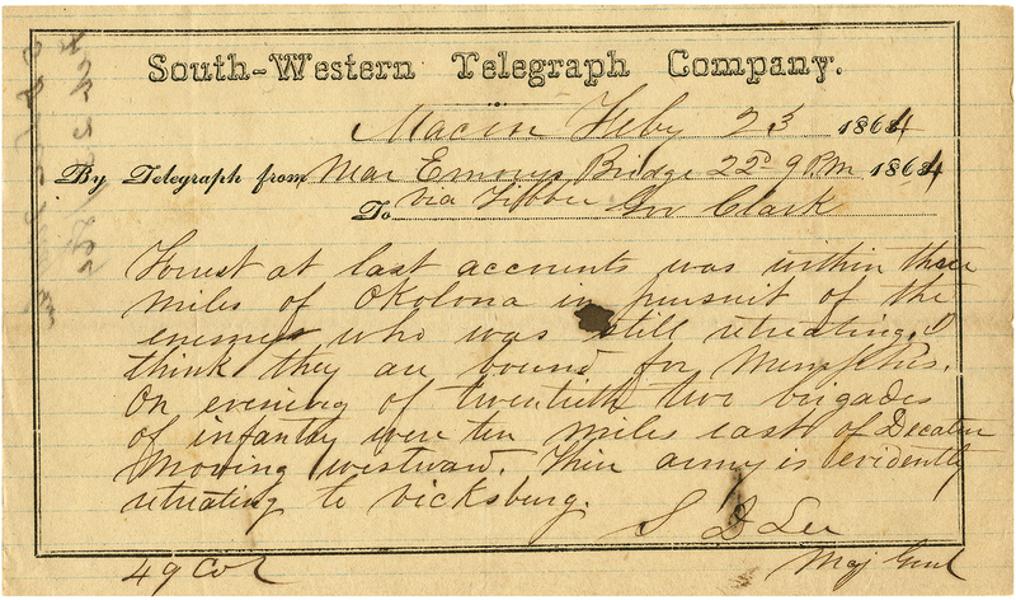 South-Western Telegraph Company.
Macon Feby 23 1864
By Telegraph from Near Emorys Bridge 22d 9 P.M 1864
via Tibbee
To Gov Clark
Forrest at last accounts was within three
miles of Okolona in pursuit of the
enemy who was still retreating. I
think they are bound for Memphis.
On evening of twentieth two brigades
of infantry were ten miles east of Decatur
moving westward. Their army is evidently
retreating to Vicksburg.
S D Lee
Maj Genl
49 Col